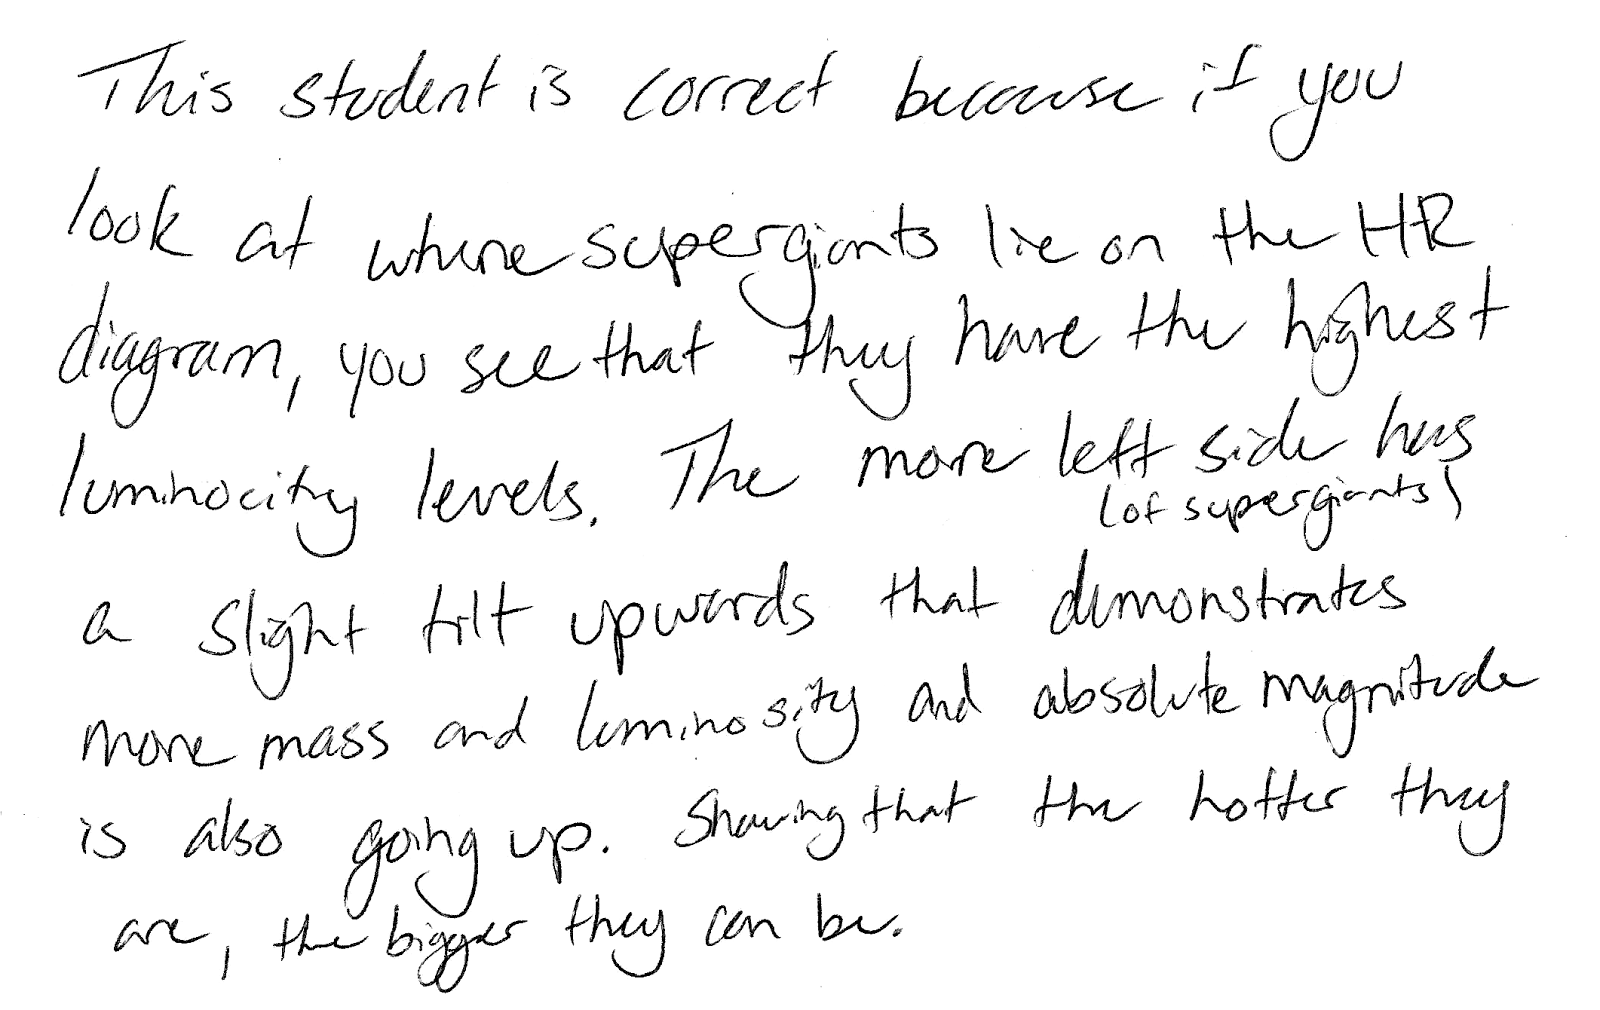 This student is correct because if you
look at where supergiants lie on the HR
diagram, you see that they have the highest
luminocity levels. The more left side has
(of supergiants)
a slight tilt upwards that demonstrates
more mass and luminosity and absolute magnitude
is also going up. Showing that the hotter they
are, the bigger they can be.